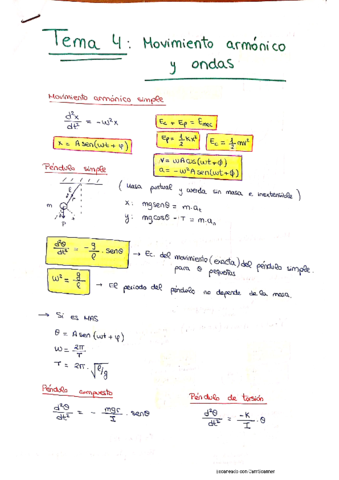 Tema 4: Movimiento armónico
y ondas
Movimiento armónico simple
d²x/dt² = -ω²x
Ec + Ep = Emec
x = A sen(ωt + φ)
Ep = 1/2 Kx²
Ec = 1/2 mv²
v = ωA cos(ωt + φ)
a = -ω²A sen(ωt + φ)
Péndulo simple
(Masa puntual y cuerda sin masa e inextensible)
x: mg senθ = m·at
y: mg cosθ - T = m·an
m
P
d²θ/dt² = -g/l · senθ → Ec. del movimiento (exacta) del péndulo simple.
para θ pequeños
ω² = g/l → El periodo del péndulo no depende de la masa.
→ Si es MAS
θ = A sen(ωt + φ)
ω = 2π/T
T = 2π · √l/g
Péndulo compuesto
d²θ/dt² = - mgr/I · senθ
Péndulo de torsión
d²θ/dt² = -K/I · θ
Escaneado con CamScanner